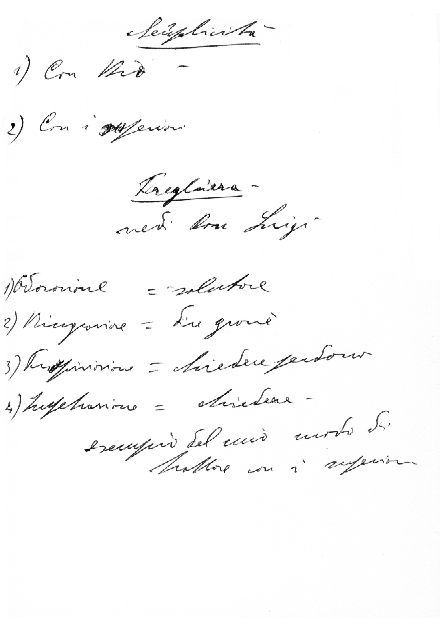 Semplicità
1) Con Dio -
2) Con i superiori
Preghiera -
vedi Don Luigi
1) Adorazione = salutare
2) Ringraziare = dire grazie
3) Propiziazione = chiedere perdono
4) Impetrazione = chiedere -
esempio del mio modo di
trattare con i superiori